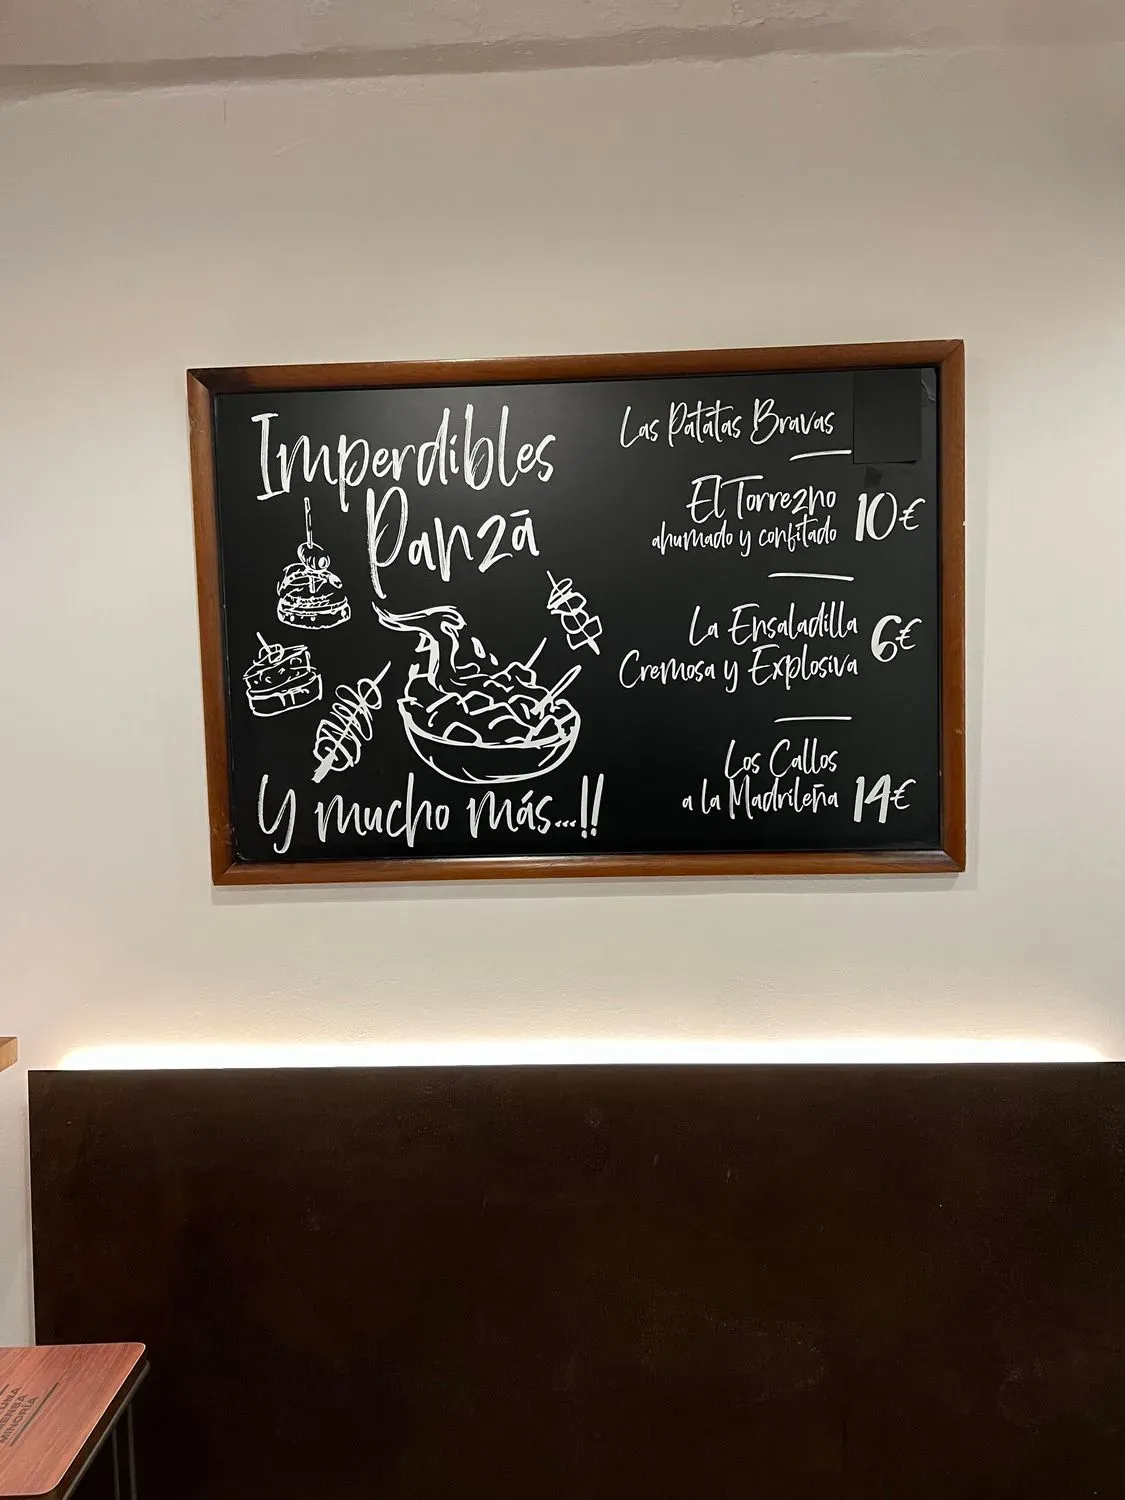 Imperdibles
Panzā
Y mucho más...!!
Las Patatas Bravas
El Torrezno
ahumado y confitado
10€
La Ensaladilla
Cremosa y Explosiva
6€
Los Callos
a la Madrileña
14€
UNA
MENSA
MINORÍA